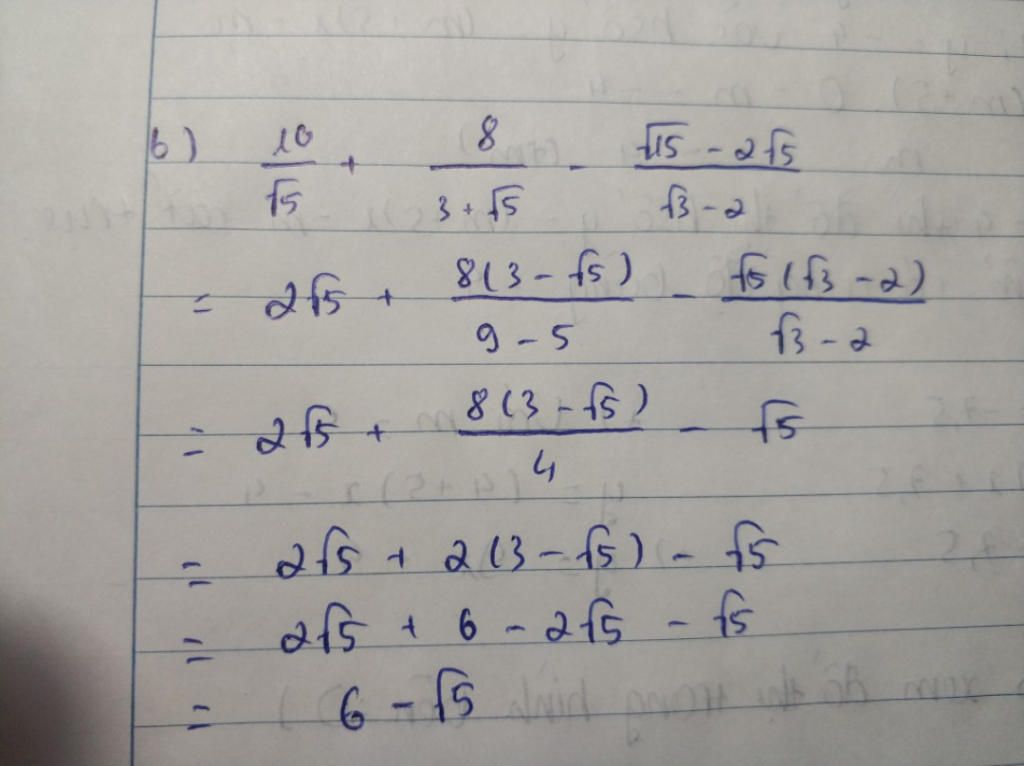 b) 10/√5 + 8/(3 + √5) - (√15 - 2√5)/(√3 - 2)
= 2√5 + 8(3 - √5)/(9 - 5) - √5(√3 - 2)/(√3 - 2)
= 2√5 + 8(3 - √5)/4 - √5
= 2√5 + 2(3 - √5) - √5
= 2√5 + 6 - 2√5 - √5
= 6 - √5